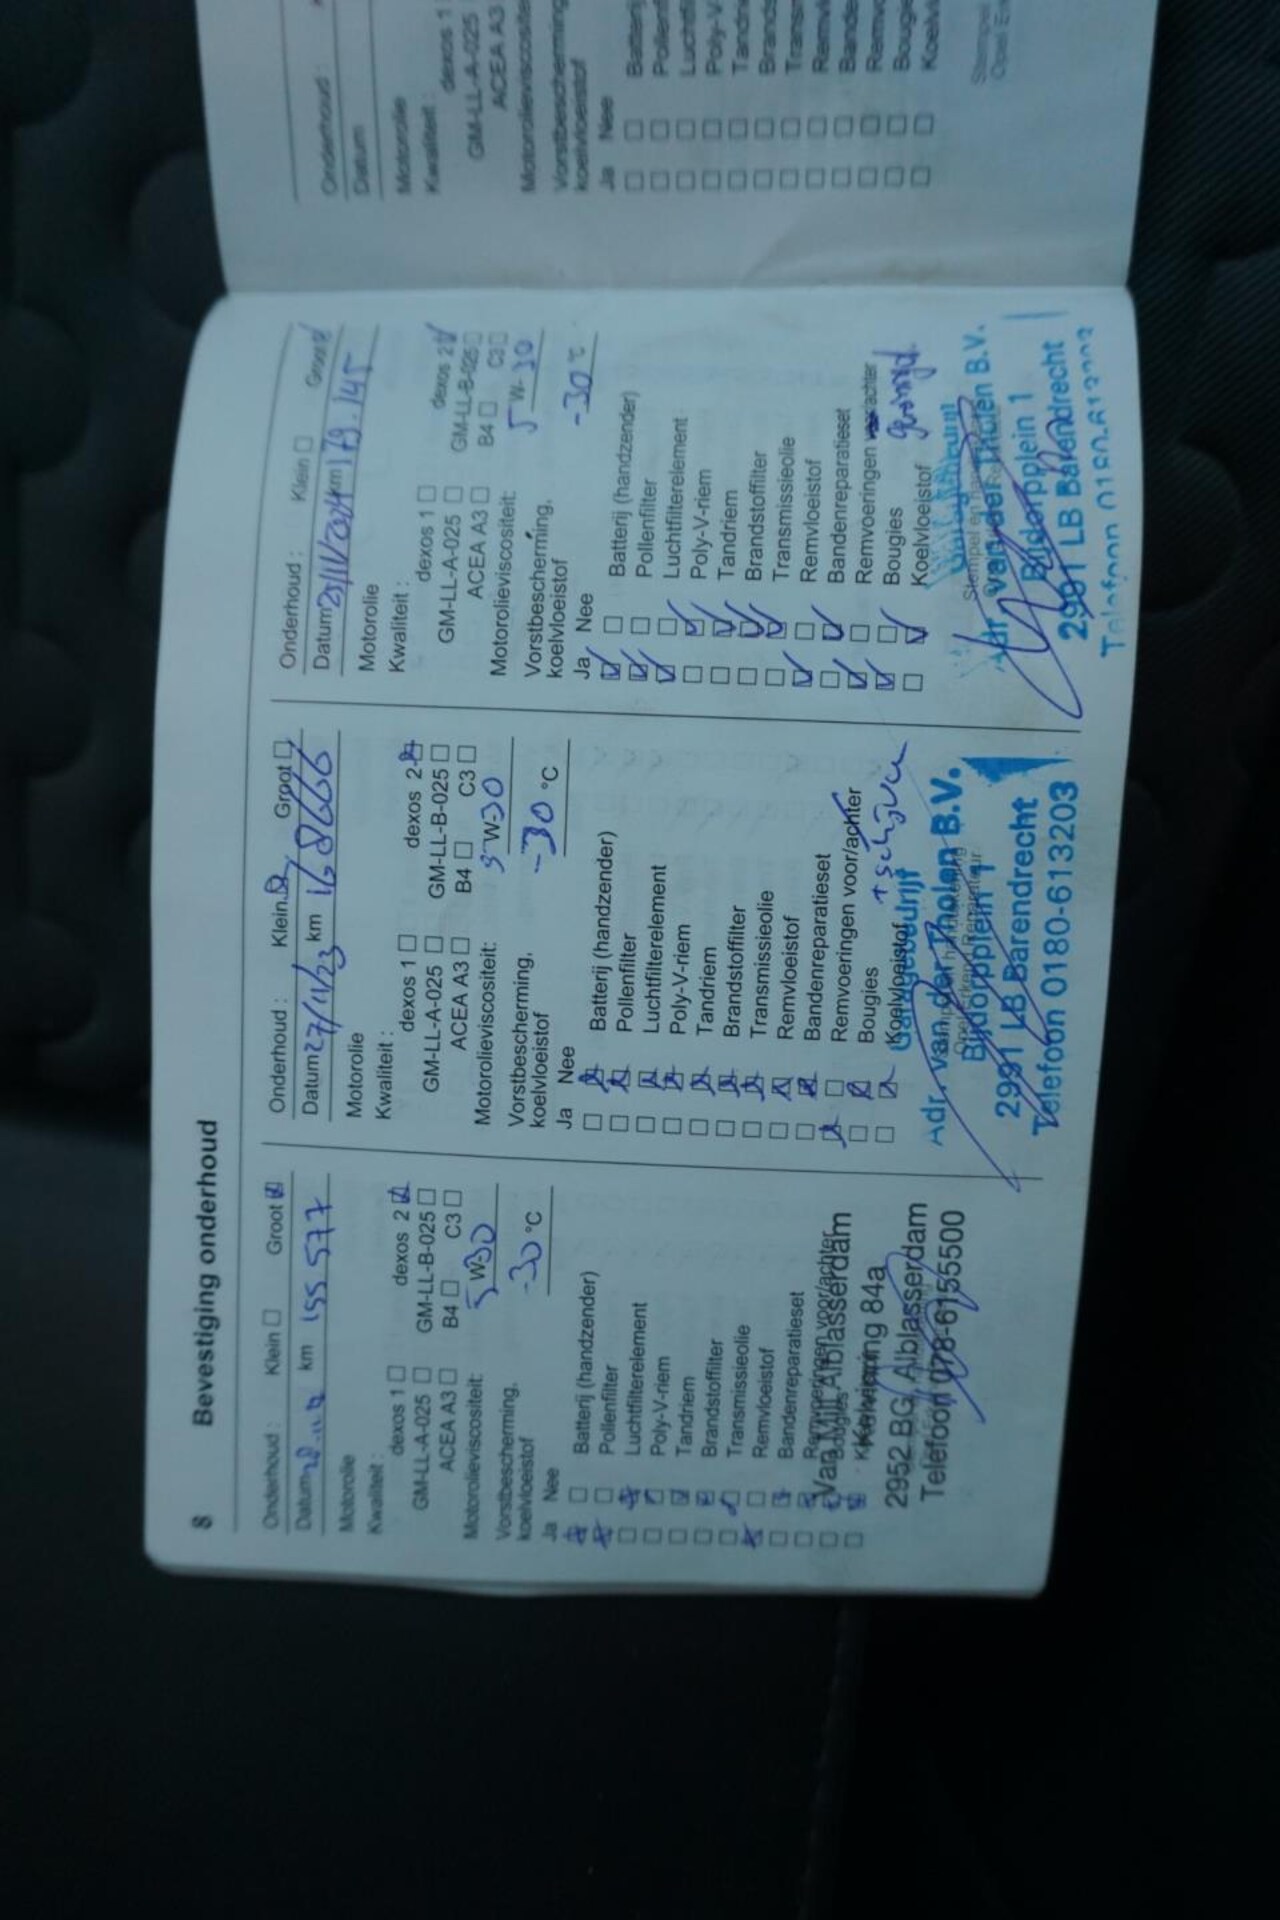 8 Bevestiging onderhoud
Onderhoud : Klein Groot
Datum km 155 577
Motorolie
Kwaliteit :
dexos 1 dexos 2
GM-LL-A-025 GM-LL-B-025
ACEA A3 B4 C3
Motorolieviscositeit: 5 W-30
Vorstbescherming,
koelvloeistof -30 °C
Ja Nee
Batterij (handzender)
Pollenfilter
Luchtfilterelement
Poly-V-riem
Tandriem
Brandstoffilter
Transmissieolie
Remvloeistof
Bandenreparatieset
Remvoeringen voor/achter
Bougies
Van Mill Alblasserdam
Kelvinring 84a
2952 BG Alblasserdam
Telefoon 078-6155500
Onderhoud : Klein Groot
Datum 27/11/23 km 168666
Motorolie
Kwaliteit :
dexos 1 dexos 2
GM-LL-A-025 GM-LL-B-025
ACEA A3 B4 C3
Motorolieviscositeit: 5 W-30
Vorstbescherming,
koelvloeistof -30 °C
Ja Nee
Batterij (handzender)
Pollenfilter
Luchtfilterelement
Poly-V-riem
Tandriem
Brandstoffilter
Transmissieolie
Remvloeistof
Bandenreparatieset
Remvoeringen voor/achter
Bougies + schijven
Koelvloeistof
Garagebedrijf
Adr. van der Tholen B.V.
Bijdorpplein 1
2991 LB Barendrecht
Telefoon 0180-613203
Onderhoud : Klein Groot
Datum km 179.145
Motorolie
Kwaliteit :
dexos 1 dexos 2
GM-LL-A-025 GM-LL-B-025
ACEA A3 B4 C3
Motorolieviscositeit: 5 W-30
Vorstbescherming,
koelvloeistof -30 °C
Ja Nee
Batterij (handzender)
Pollenfilter
Luchtfilterelement
Poly-V-riem
Tandriem
Brandstoffilter
Transmissieolie
Remvloeistof
Bandenreparatieset
Remvoeringen achter
Bougies
Koelvloeistof
Adr. van der Tholen B.V.
Bijdorpplein 1
2991 LB Barendrecht
Telefoon 0180-613203
Onderhoud :
Datum
Motorolie
Kwaliteit :
dexos 1
GM-LL-A-025
ACEA A3
Motorolieviscosite
Vorstbescherming
koelvloeistof
Ja Nee
Batterij
Pollenf
Luchtfi
Poly-V
Tandri
Brands
Transm
Remvl
Bande
Remvo
Bougie
Koelvl
Stempel